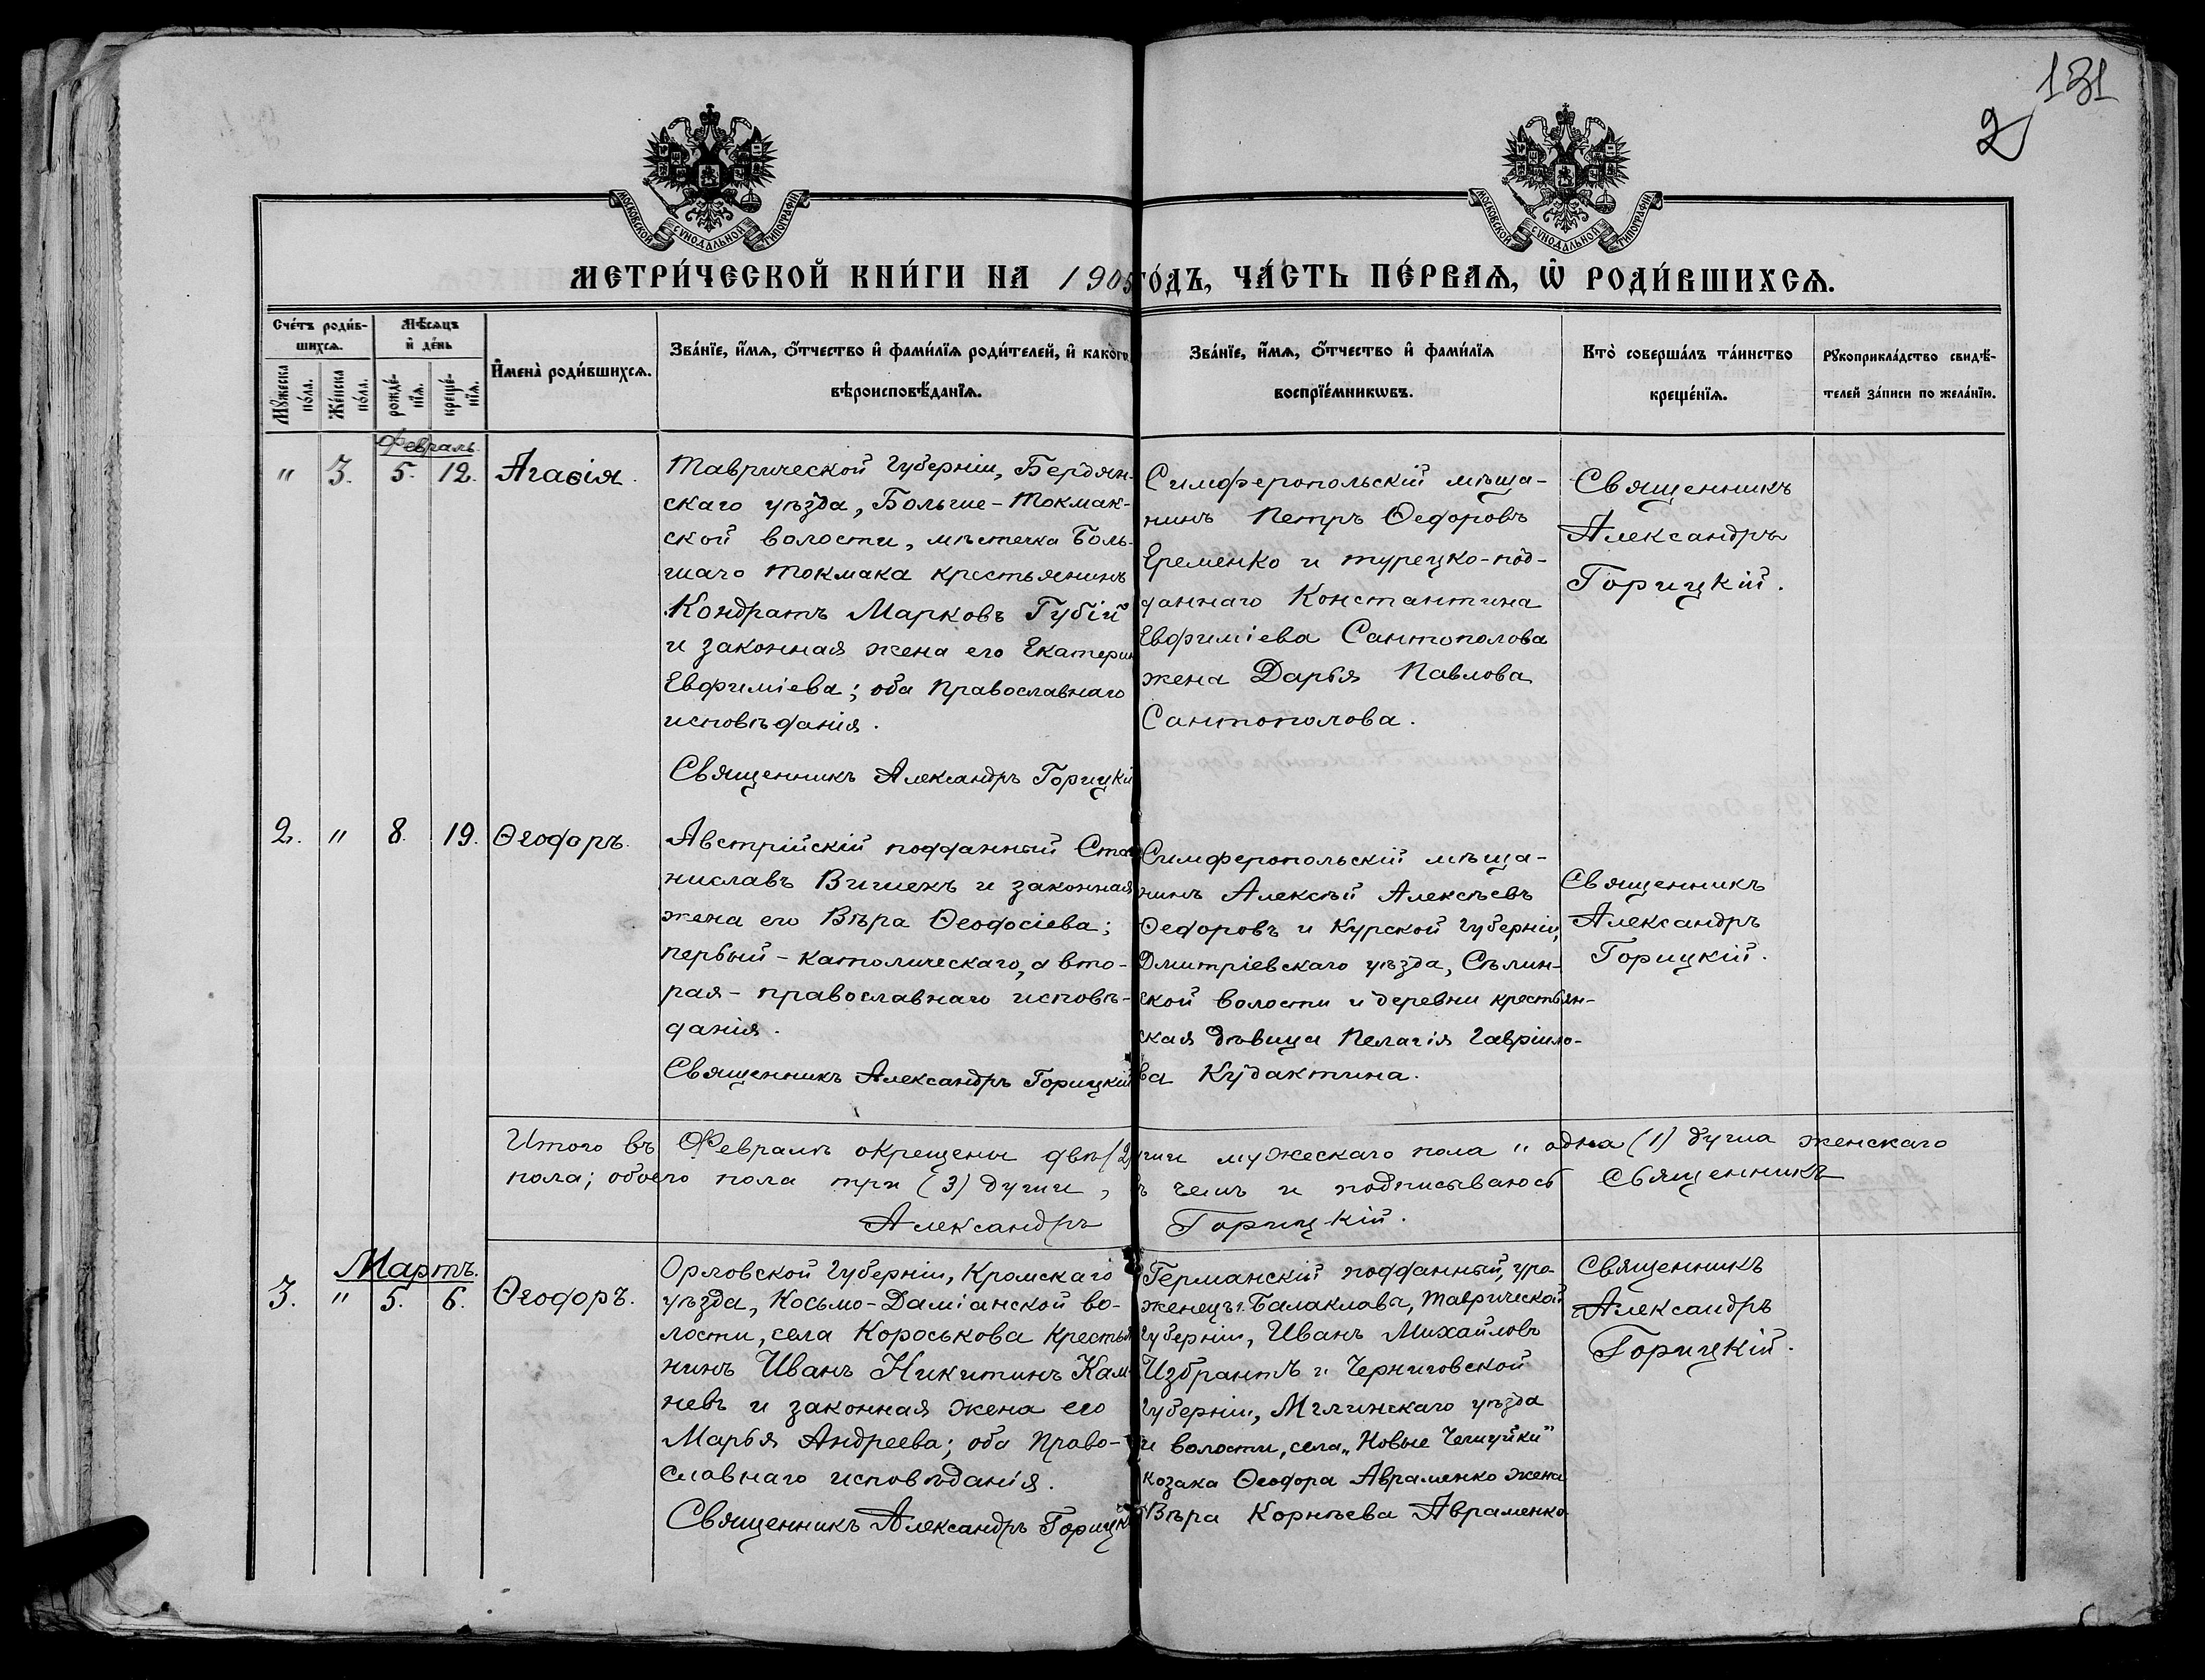 131
2
МОСКОВСКОЙ СѴНОДАЛЬНОЙ ТИПОГРАФІИ
МОСКОВСКОЙ СѴНОДАЛЬНОЙ ТИПОГРАФІИ
МЕТРИ́ЧЕСКОЙ КНИ́ГИ НА 1905 ГО́ДЪ, ЧА́СТЬ ПЕ́РВАѦ, Ѡ҆ РОДИ́ВШИХСѦ.
Сче́тъ роди́в-
шихсѧ.
Мѣ́сѧцъ
и҆ де́нь
И҆мена̀ роди́вшихсѧ.
Зва́нїе, и҆́мѧ, ѻ҆́тчество и҆ фами́лїѧ роди́телей, и҆ како́гѡ
вѣроисповѣ́данїѧ.
Зва́нїе, и҆́мѧ, ѻ҆́тчество и҆ фами́лїѧ
воспрїе́мникѡвъ.
Кто̀ соверша́лъ та́инство
креще́нїѧ.
Рꙋкоприкла́дство свидѣ́-
телей за́писи по жела́нїю.
Мꙋ́жеска
по́ла.
Же́нска
по́ла.
рожде́-
нїѧ.
креще́-
нїѧ.
Февраль.
" 3. 5. 12. Агаѳія.
Таврической Губерніи, Бердян-
скаго уѣзда, Больше-Токмак-
ской волости, мѣстечка Боль-
шаго Токмака крестьянинъ
Кондратъ Марковъ Губій
и законная жена его Екатерин
Евфиміева; оба Православнаго
исповѣданія.
Священникъ Александръ Горицкій
Симферопольскій мѣща-
нинъ Петръ Ѳедоровъ
Еременко и турецко-под-
даннаго Константина
Евфиміева Сантополова
жена Дарья Павлова
Сантополова.
Священникъ
Александръ
Горицкій.
2. " 8. 19. Ѳеодоръ.
Австрійскій подданный Ста-
ниславъ Вишекъ и законная
жена его Вѣра Ѳеодосіева;
первый - католическаго, а вто-
рая - православнаго исповѣ-
данія.
Священникъ Александръ Горицкій
Симферопольскій мѣща-
нинъ Алексѣй Алексѣевъ
Ѳедоровъ и Курской Губерніи,
Дмитріевскаго уѣзда, Сѣлин-
ской волости и деревни крестьян-
ская дѣвица Пелагія Гавріило-
ва Кудактина.
Священникъ
Александръ
Горицкій.
Итого въ Февралѣ окрещены двѣ (2) души мужескаго пола " одна (1) душа женскаго
пола; обоего пола три (3) души, въ чемъ и подписываюсь Священникъ
Александръ Горицкій.
Мартъ.
3. " 5. 6. Ѳеодоръ.
Орловской Губерніи, Кромскаго
уѣзда, Косьмо-Даміанской во-
лости, села Короськова Крестья
нинъ Иванъ Никитинъ Кам-
невъ и законная жена его
Марья Андреева; оба Право-
славнаго исповѣданія.
Священникъ Александръ Горицк
Германскій подданный, уро-
женецъ г. Балаклавы, Таврической
Губерніи, Иванъ Михайловъ
Избрантъ и Черниговской
Губерніи, Мглинскаго уѣзда
и волости, села „Новые Чешуйки"
козака Ѳеодора Авраменко жена
Вѣра Корнѣева Авраменко
Священникъ
Александръ
Горицкій.